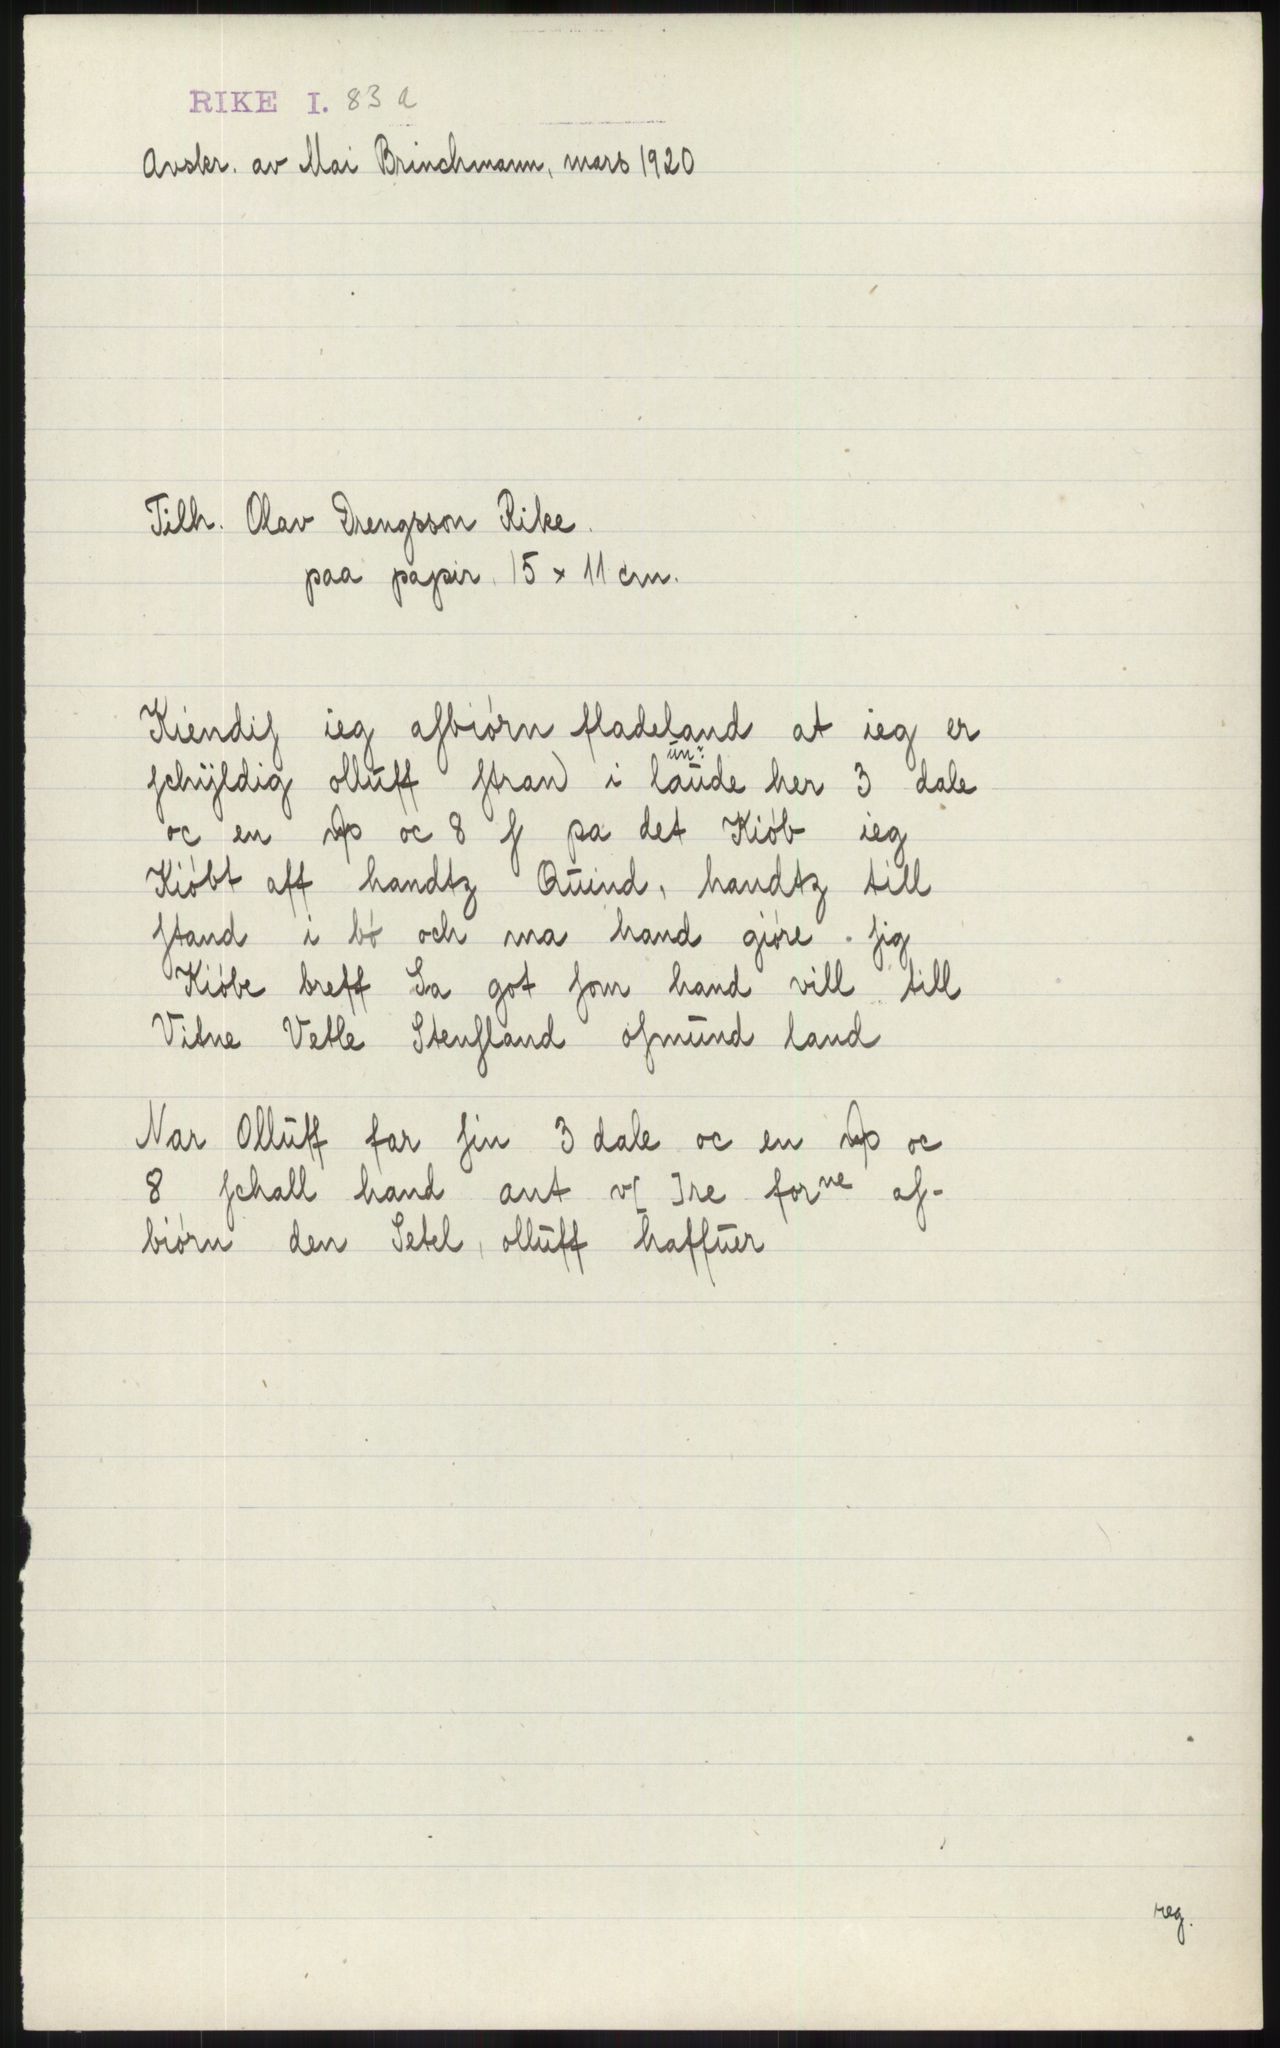 RIKE I. 83 a
Avskr. av Mai Brinchmann, mars 1920
Tilh. Olav Drengsson Rike.
paa papir. 15 x 11 cm.
Kiendiſ ieg aſbiørn fladeland at ieg er
un:
ſchÿldig ollŭff ſtrand i laŭde her 3 dale
oc en oc 8 ſ pa det Kiøb ieg
Kiøbt aff handtz Qŭind, handtz till
ſtand i bø och ma hand giøre ſig
Kiøbe breff Sa got ſom hand vill till
Vitne Vetle Stenſland oſmŭnd land
Nar Ollŭff far ſin 3 dale oc en oc
8 ſchall hand ant v[ ]re forne aſ-
biørn den Setel, ollŭff haffŭer
reg.